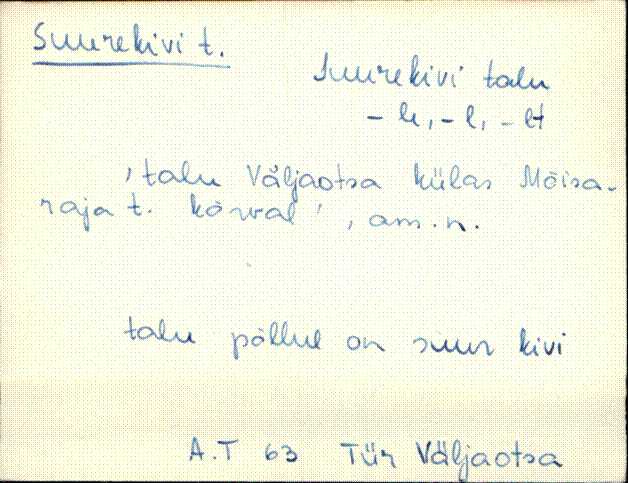 Suurekivi t.
Suurekivi talu
- le, - l, - lt
'talu Väljaotsa külas Mõisa-
raja t. kõrval', am. n.
talu põllul on suur kivi
A.T 63 Tür Väljaotsa